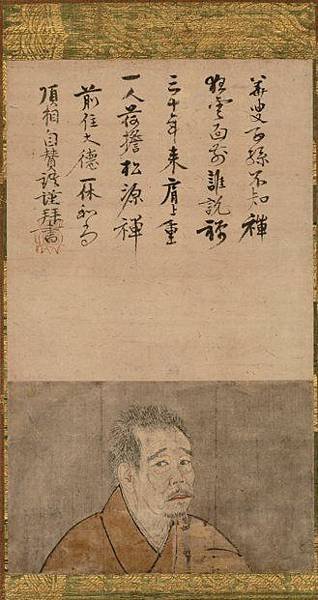 華叟子孫不知禪
狂雲面前誰説禪
三十年来肩上重
一人荷擔松源禪
前住大德一休和尚
頂相自賛語謹拜書